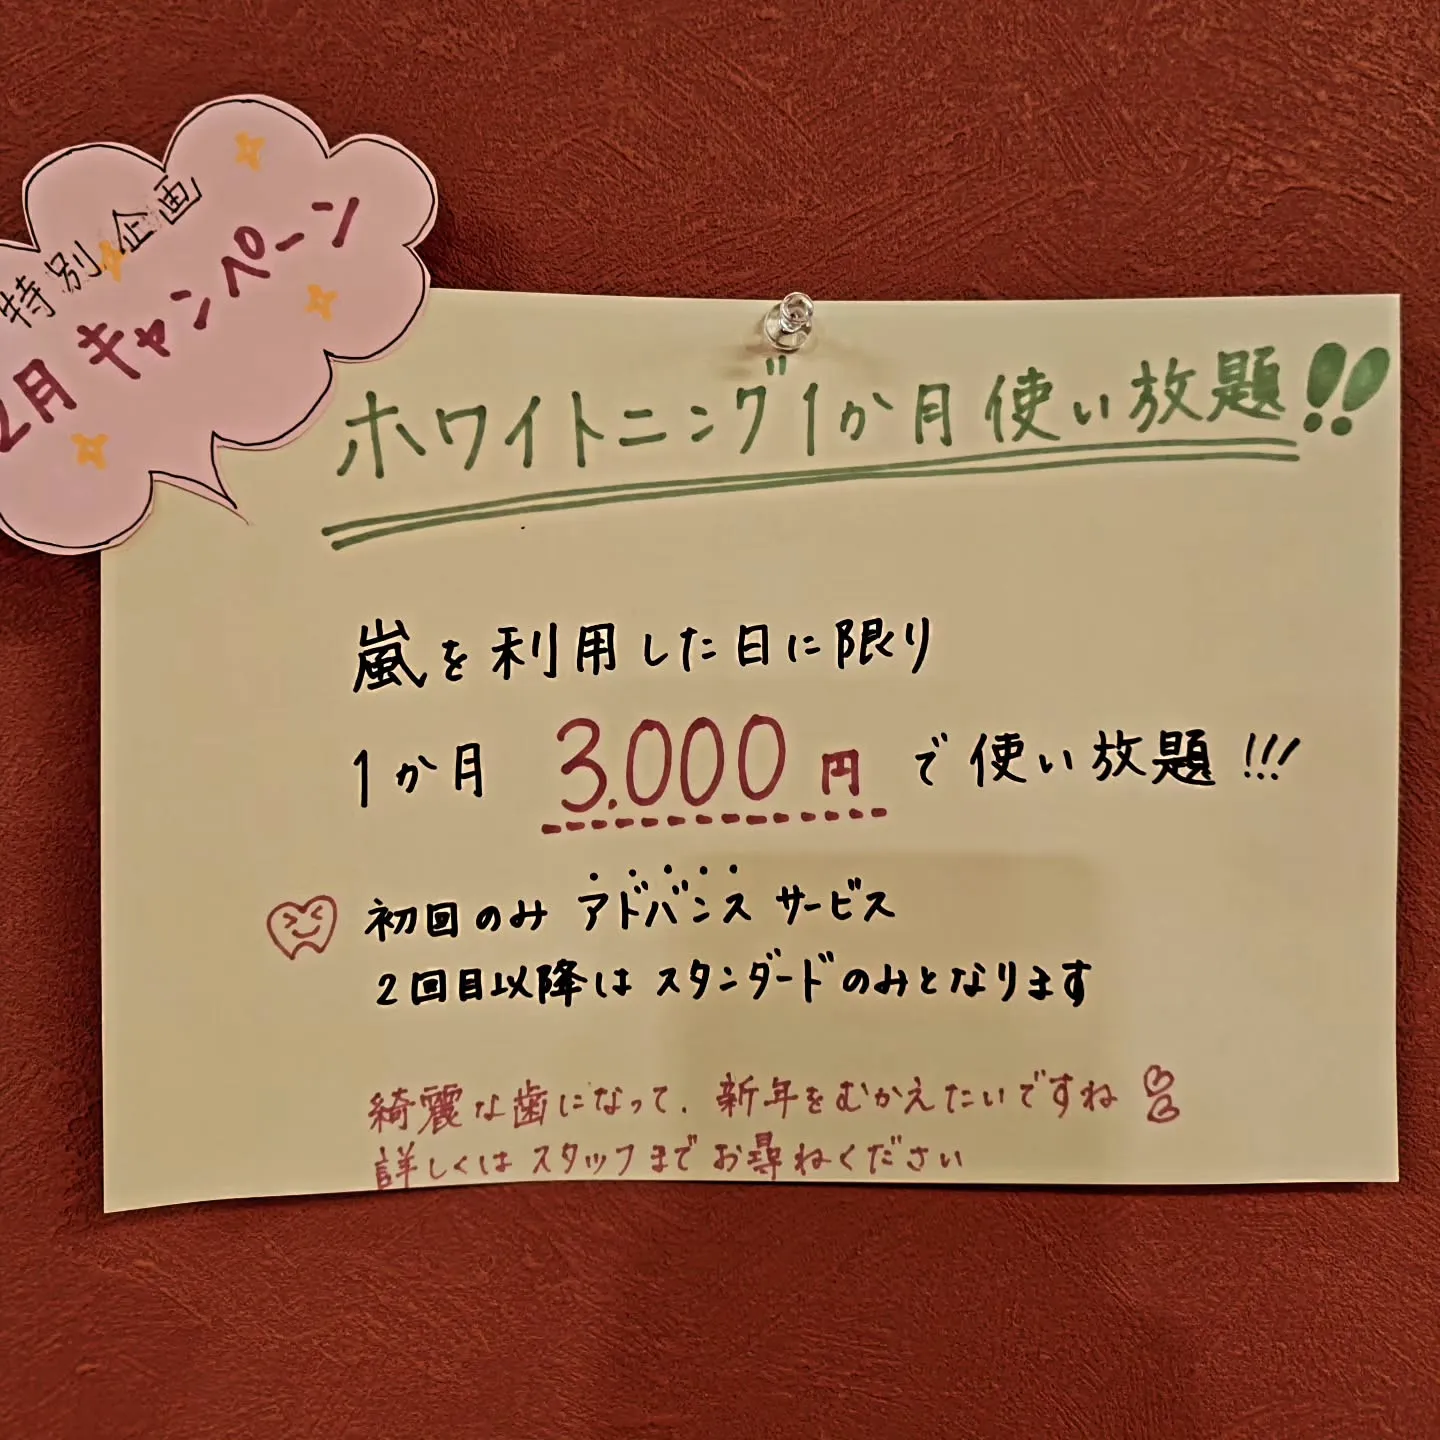 特別企画
2月キャンペーン
ホワイトニング1か月使い放題!!
嵐を利用した日に限り
1か月 3.000円で使い放題!!!
初回のみ アドバンスサービス
2回目以降はスタンダードのみとなります
綺麗な歯になって、新年をむかえたいですね
詳しくはスタッフまでお尋ねください